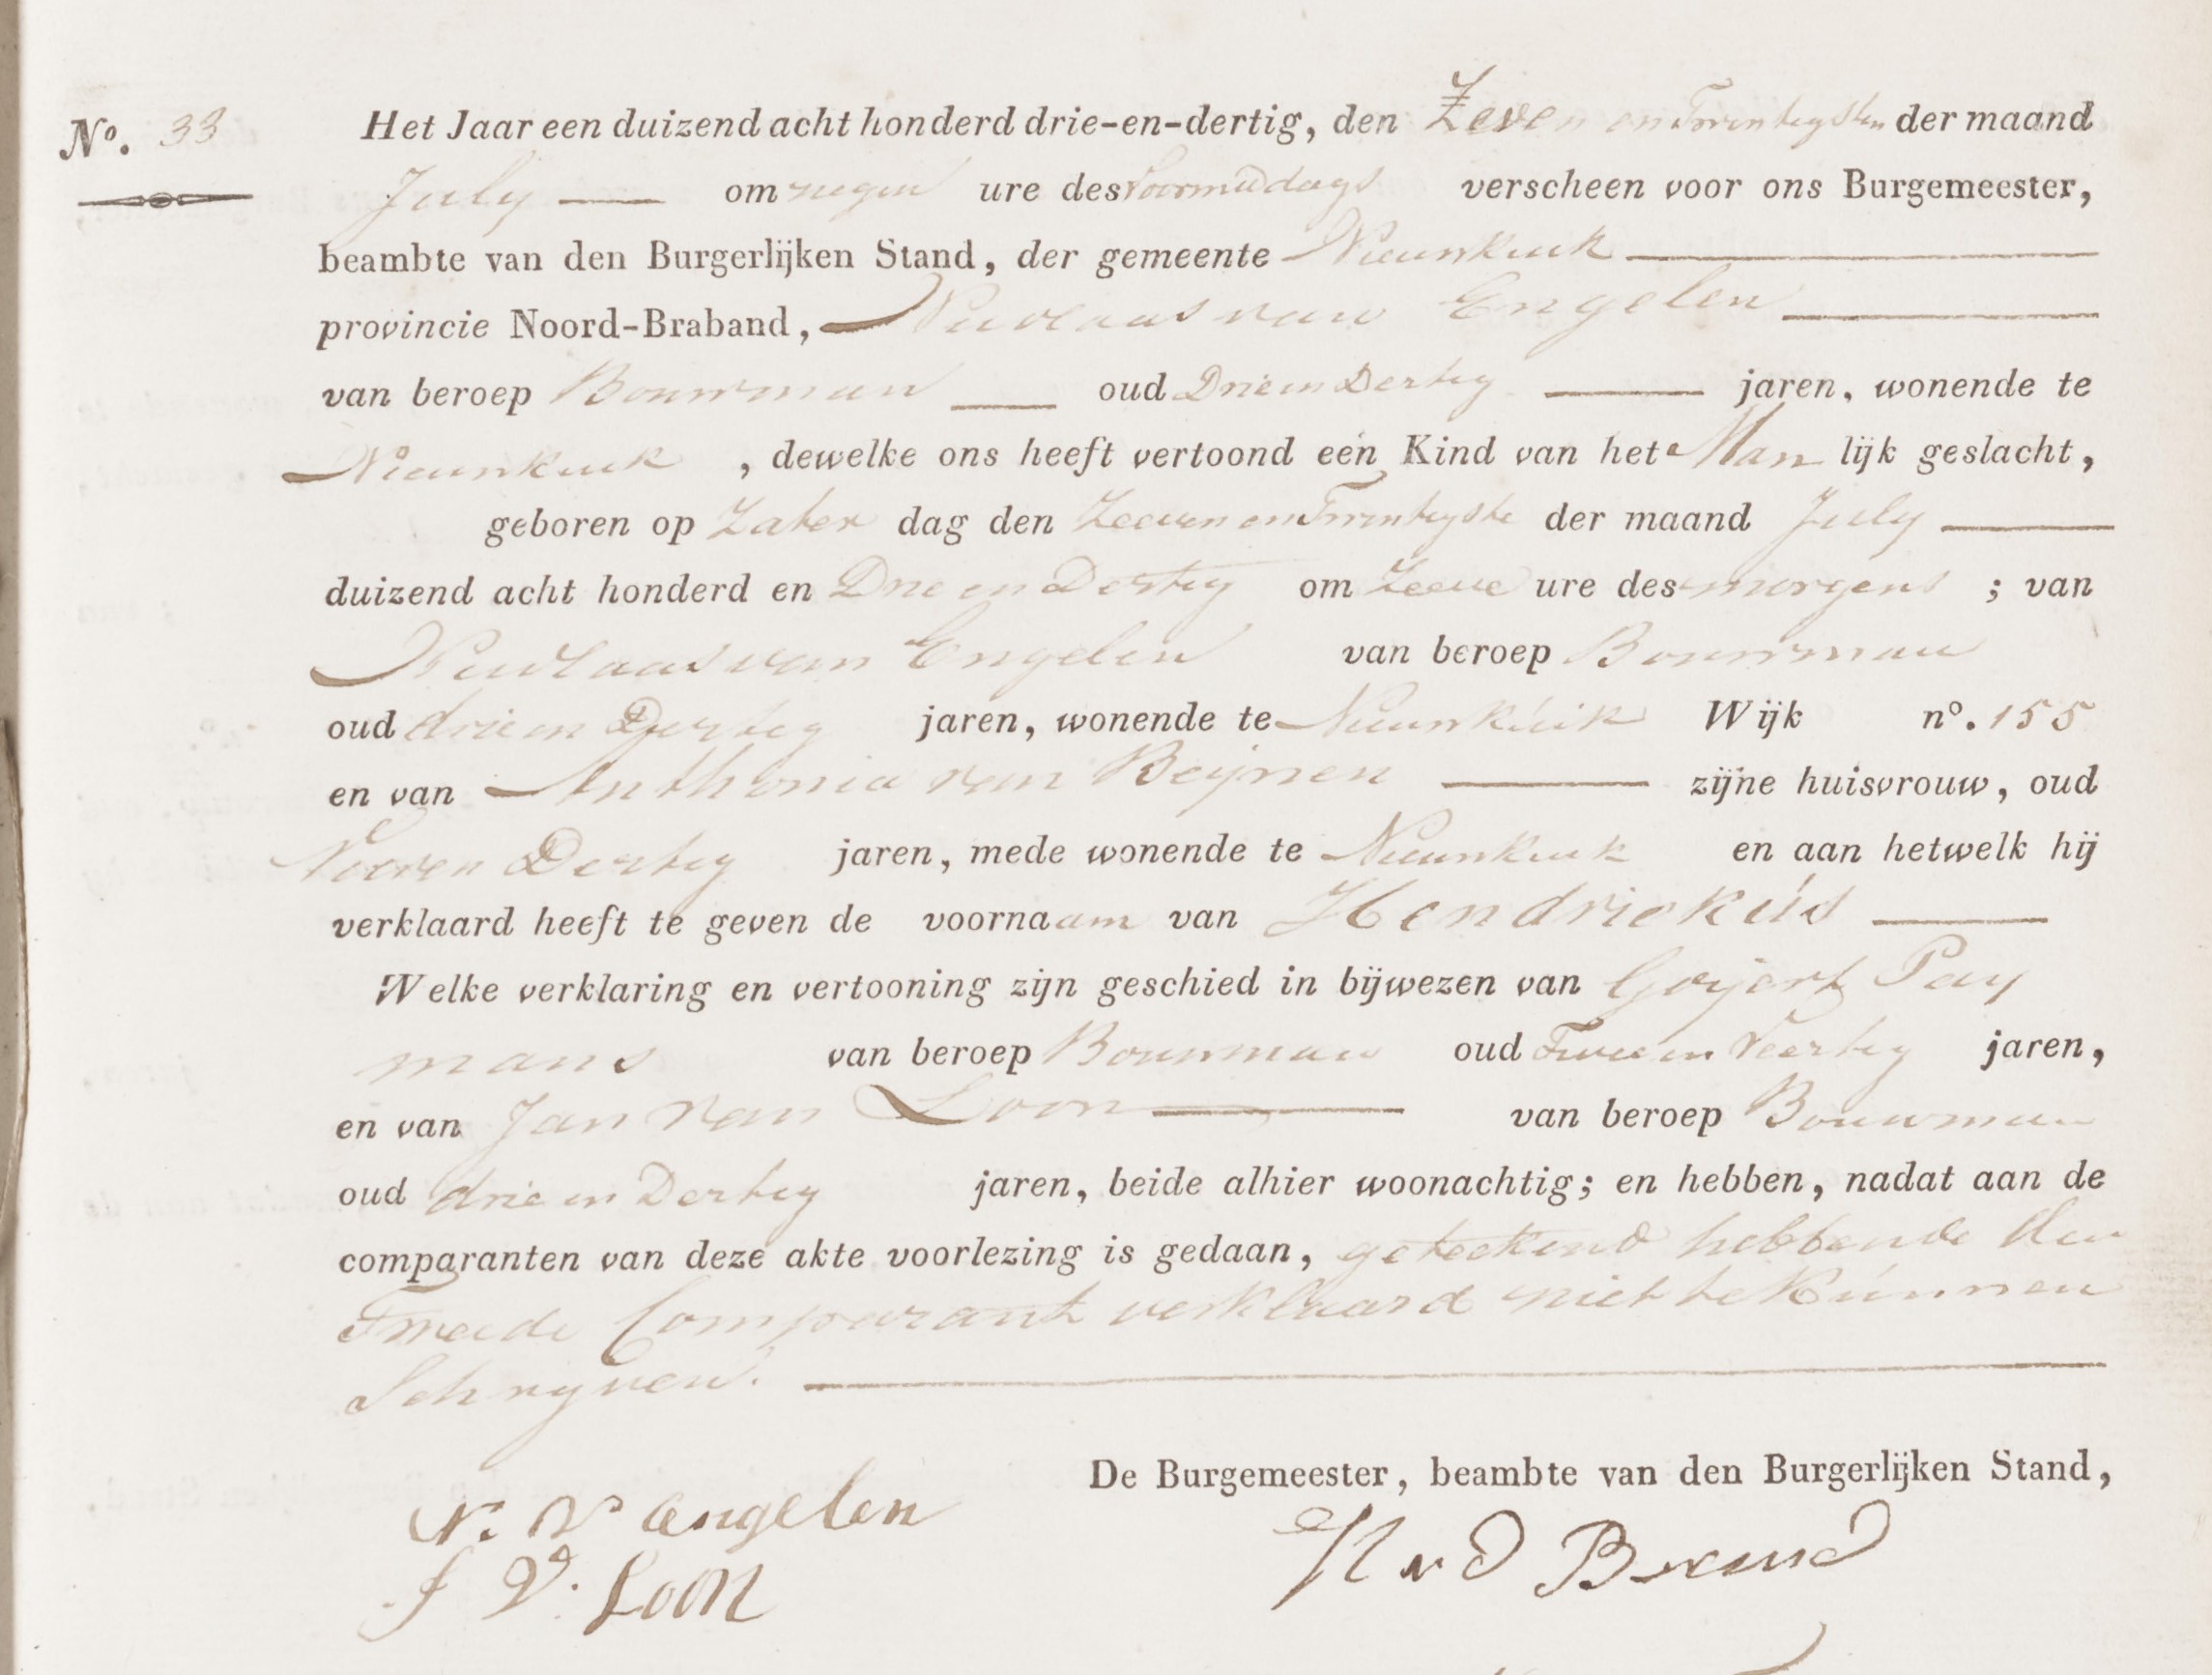 N°. 33 Het Jaar een duizend acht honderd drie-en-dertig, den Zeven en Twintigsten der maand
July om negen ure des voormiddags verscheen voor ons Burgemeester,
beambte van den Burgerlijken Stand, der gemeente Nieuwkuik
provincie Noord-Braband, Nicolaas van Engelen
van beroep Bouwman oud Drie en Dertig jaren, wonende te
Nieuwkuik, dewelke ons heeft vertoond een Kind van het Man lijk geslacht,
geboren op Zater dag den Zeeven en Twintigste der maand July
duizend acht honderd en Drie en Dertig om Zeeve ure des morgens ; van
Nicolaas van Engelen van beroep Bouwman
oud drie en Dertig jaren, wonende te Nieuwkuik Wijk n°. 155
en van Anthonia van Beijnen zijne huisvrouw, oud
Dertig jaren, mede wonende te Nieuwkuik en aan hetwelk hij
verklaard heeft te geven de voornaam van Hendriekús
Welke verklaring en vertooning zijn geschied in bijwezen van Goyert Pay
mans van beroep Bouwman oud Twee en Veertig jaren,
en van Jan van Loon van beroep Bouwman
oud drie en Dertig jaren, beide alhier woonachtig; en hebben, nadat aan de
comparanten van deze akte voorlezing is gedaan, geteekend hebbende den
Tweede Comparant verklaard niet te kúnnen
Schryven.
De Burgemeester, beambte van den Burgerlijken Stand,
N. V engelen
J V. Loon